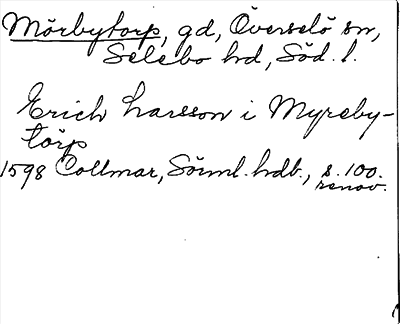 Mörbytorp, gd, Överselö sn,
Selebo hd, Söd. l.
Erich Larsson i Myreby-
torp
1598 Collmar, Sörml. hdb., s. 100.
renov.